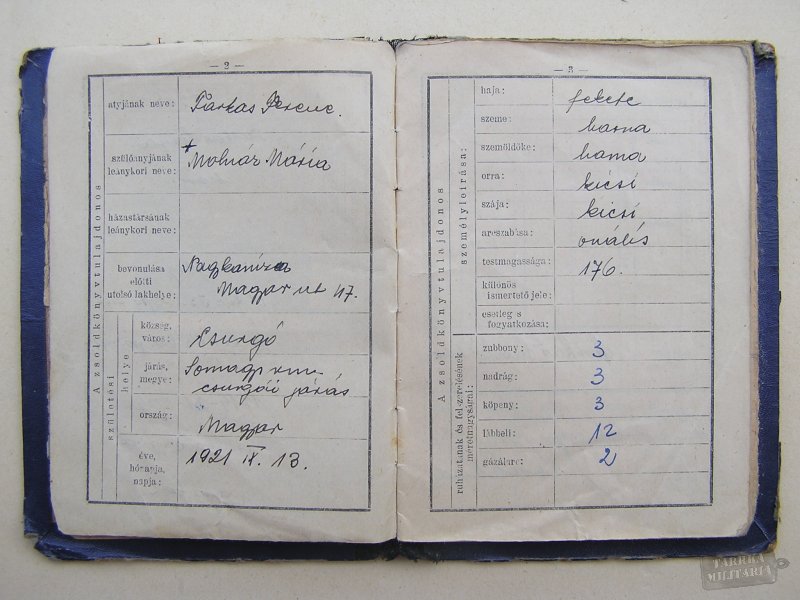 — 2 —
A zsoldkönyvtulajdonos
atyjának neve: Farkas Ferenc.
szülőanyjának
leánykori neve: Molnár Mária
házastársának
leánykori neve:
bevonulása
előtti
utolsó lakhelye: Nagykanizsa
Magyar ut 47.
születési
helye
község,
város: Csurgó
járás,
megye: Somogy vm.
csurgói járás
ország: Magyar
éve,
hónapja,
napja: 1921 IX. 13.
— 3 —
A zsoldkönyvtulajdonos
személyleirása:
haja: fekete
szeme: barna
szemöldöke: barna
orra: kicsi
szája: kicsi
arcszabása: ovális
testmagassága: 176.
különös
ismertető jele:
esetleges
fogyatkozása:
ruházatának és felszerelésének
méretnagyságai:
zubbony: 3
nadrág: 3
köpeny: 3
lábbeli: 12
gázálarc: 2
TARRKA
MILITARIA